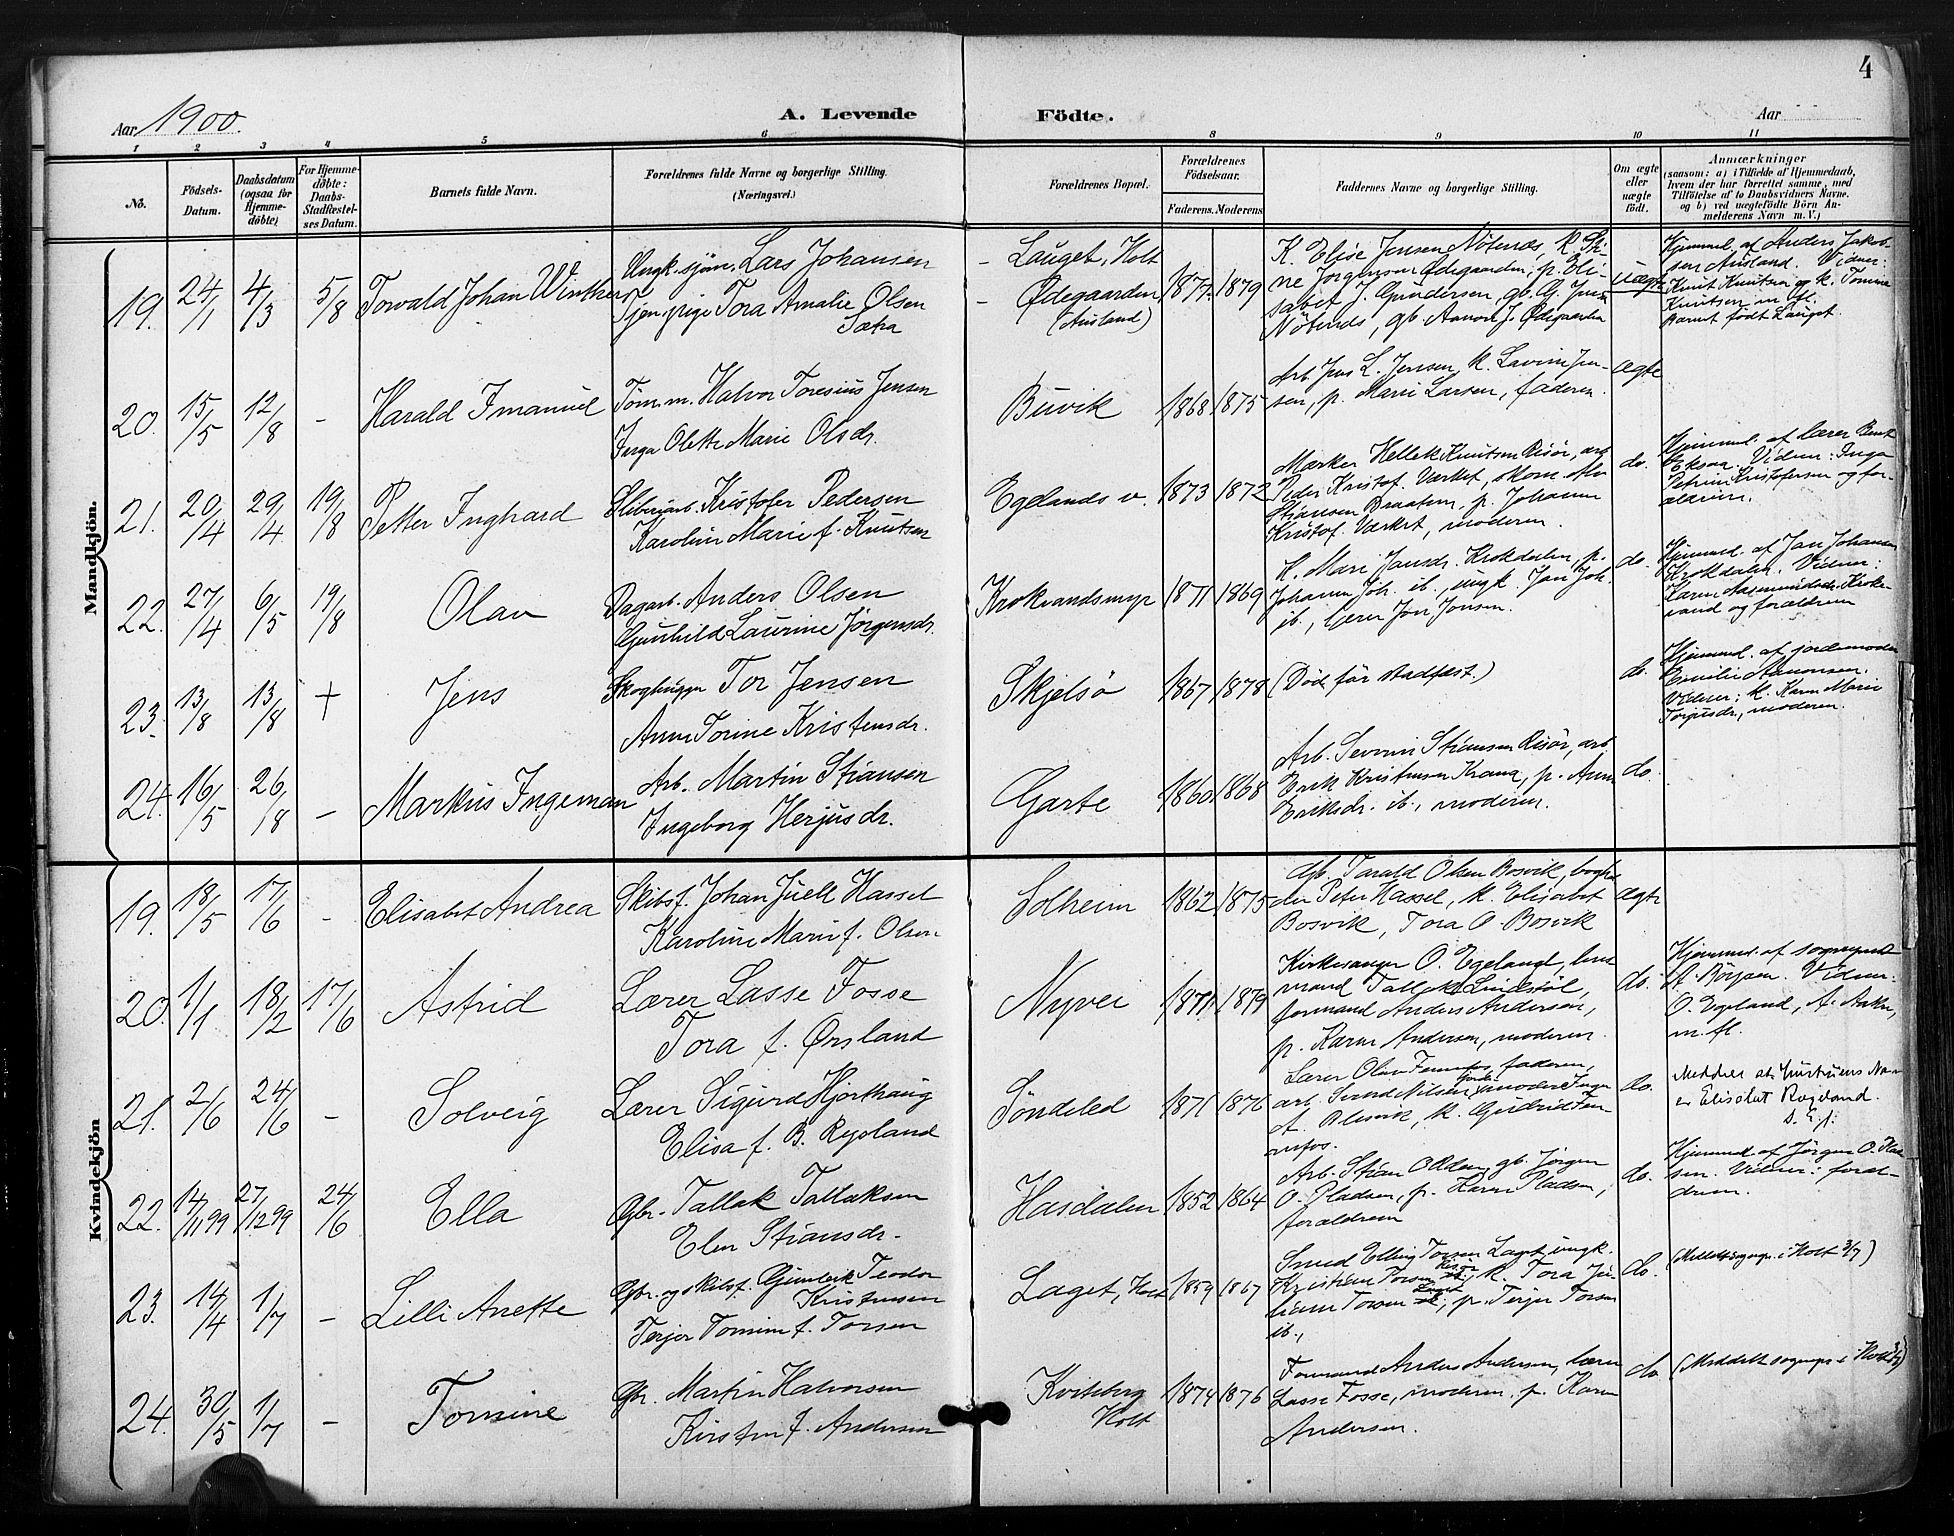 4
Aar 1900.
A. Levende Födte.
Aar
1 2 3 4 5 6 8 9 10 11
No.
Födsels-Datum.
Daabsdatum (ogsaa for Hjemme-döbte).
For Hjemme-döbte: Daabs-Stadfæstel-ses Datum.
Barnets fulde Navn.
Forældrenes fulde Navne og borgerlige Stilling.
(Næringsvei.)
Forældrenes Bopæl.
Forældrenes Födselsaar.
Faderens. Moderens
Faddernes Navne og borgerlige Stilling.
Om ægte eller uægte födt.
Anmærkninger
(saasom: a) i Tilfælde af Hjemmedaab,
hvem der har forrettet samme, med
Tilföielse af to Daabsvidners Navne.
og b) ved uægtefödte Börn An-
melderens Navn m. V.)
Mandkjön.
19. 24/1 4/3 5/8 Torvald Johan
Ungk. sjøm. Lars Johansen
Tjen. pige Tora Amalie Olsen
- Lauget, Holt
- Ødegaarden
(Ausland)
1877 1879
K. Elise Jensen Nötenæs, k. Sti-
ne Jørgensen Ødegaarden, p. Eli-
sabet J. Gundersen, gb. G. Jens.
Nötenæs, gb. Aanon J. Ødegaarden
uægte
Hjemmed. af Anders Jakob-
sen Ausland. Vidner:
Knut Knutsen og k. Tomine
Knutsen m. fl.
Barnet født Lauget.
20. 15/5 12/8 - Harald Imanuel
Töm.m. Halvor Toresius Jensen
Inga Olette Marie Olsdr.
Buvik
1868 1875
Arb. Jens L. Jensen, k. Lavine Jen-
sen, p. Marie Larsen, faderen.
ægte
21. 20/4 29/4 19/8 Petter Inghard
Kristofer Pedersen
Karoline Marie f. Knutsen
Egelands v.
1873 1872
Mærker Hellek Knutsen Risör, arb.
Peder Kristof. Værket, skom.
Stiansen Braaten, p. Johanne
Kristof. Værket, moderen.
do.
Hjemmed. af lærer Bent
Eksaa. Vidner: Inga
Petrine Kristofersen og for-
ældrene.
22. 27/4 6/5 19/8 Olav
Dagarb. Anders Olsen
Gunhild Laurine Jørgensdr.
Krokvandsmyr
1871 1869
K. Mari Jansdr. Krokdalen, p.
Johanne Joh. ib., ungk. Jan Joh.
ib., lærer Jon Jonsen.
do.
Hjemmed. af Jan Johansen
Krokdalen. Vidner:
Karen Aasmundsdr. Krok-
vand og forældrene
23. 13/8 13/8 + Jens
Skoghugger Tor Jensen
Anne Torine Kristensdr.
Skjelsö
1867 1878
(Död för stadfæst.)
do.
Hjemmed. af jordemoder
Emilie Aanonsen.
Vidner: k. Karen Marie
Torjusdr., moderen.
24. 16/5 26/8 - Markus Ingeman
Arb. Martin Stiansen
Ingeborg Herjusdr.
Garte
1860 1868
Arb. Severin Stiansen Risör, arb.
Erik Kristensen Krana, p. Anne
Eriksdr. ib., moderen.
do.
Kvindekjön
19. 18/5 17/6 - Elisabet Andrea
Skibsf. Johan Juell Hassel
Karoline Marie f. Olsen
Solheim
1862 1875
Gb. Tarald Olsen Bosvik,
Peter Hassel, k. Elisabet
Bosvik, Tora O. Bosvik
ægte
20. 1/1 18/2 17/6 Astrid
Lærer Lasse Fosse
Tora f. Ørsland
Nyvei
1871 1879
Kirkesanger O. Egeland, lens
mand Tallak Lindstöl,
formand Anders Andersen,
p. Karen Andersen, moderen.
do.
Hjemmed. af sogneprest
A. Börjesen. Vidner:
O. Egeland, A. Anker,
m. fl.
21. 2/6 24/6 - Solveig
Lærer Sigurd Hjorthaug
Elisa f. B. Rygland
Söndeled
1871 1876
Lærer Olav Fennefos, faderen,
arb. Severd Nilsen, jordemoder Inger
A. Blesvik, k. Gudrid Fen-
nefos.
do.
Meddeles at hustruens Navn
er Elisabet Rogdand.
S. E. f:
22. 14/11 99 27/12 99 24/6 Ella
Gbr. Tallak Tallaksen
Elen Stiansdr.
Hasdalen
1852 1864
Arb. Stian Olsen, gb. Jörgen
O. Pladsen, p. Karen Pladsen,
forældrene
do.
Hjemmed. af Jörgen O. Has
sen. Vidner: foræl-
drene.
23. 14/4 1/7 - Lilli Anette
Gbr. og skibsf. Gunleik Teodor
Kristensen
Terjer Tomine f. Torsen
Laget, Holt
1859 1867
Smed Elling Torsen Laget, ungk.
Kristian Torsen Risör, k. Tora Ju-
liane Torsen Laget, p. Terjer Torsen
ib.,
do.
(Meldt sognepr. i Holt 3/7)
24. 30/5 1/7 - Tomine
Gbr. Martin Halvorsen
Kirsten f. Andersen
Kviteberg
Holt
1874 1876
Formand Anders Andersen, lærer
Lasse Fosse, moderen, p. Karen
Andersen.
do.
(Meddelt sognepr. i Holt 3/7)